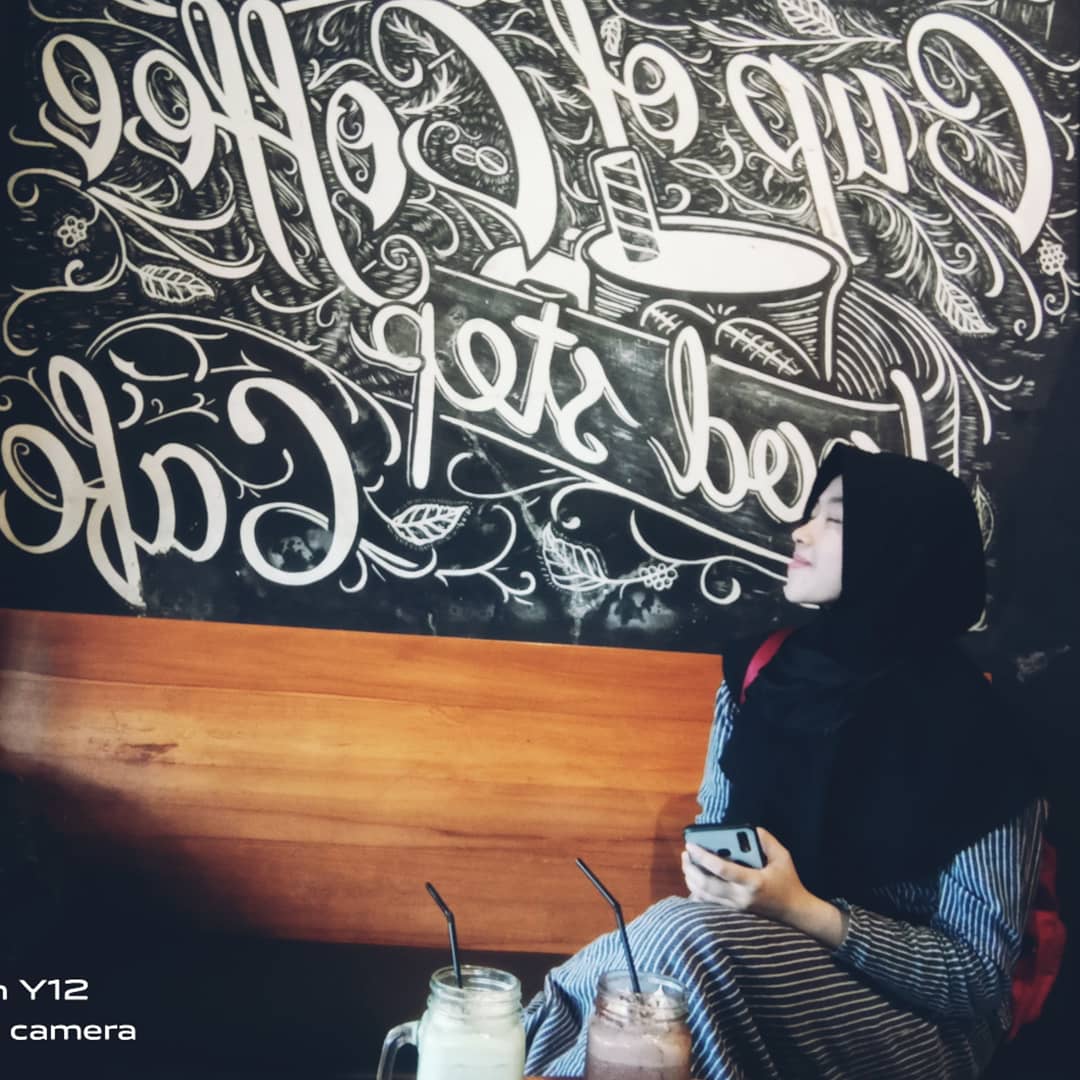 Cup of Coffee
Next step
Cafe
Y12
camera